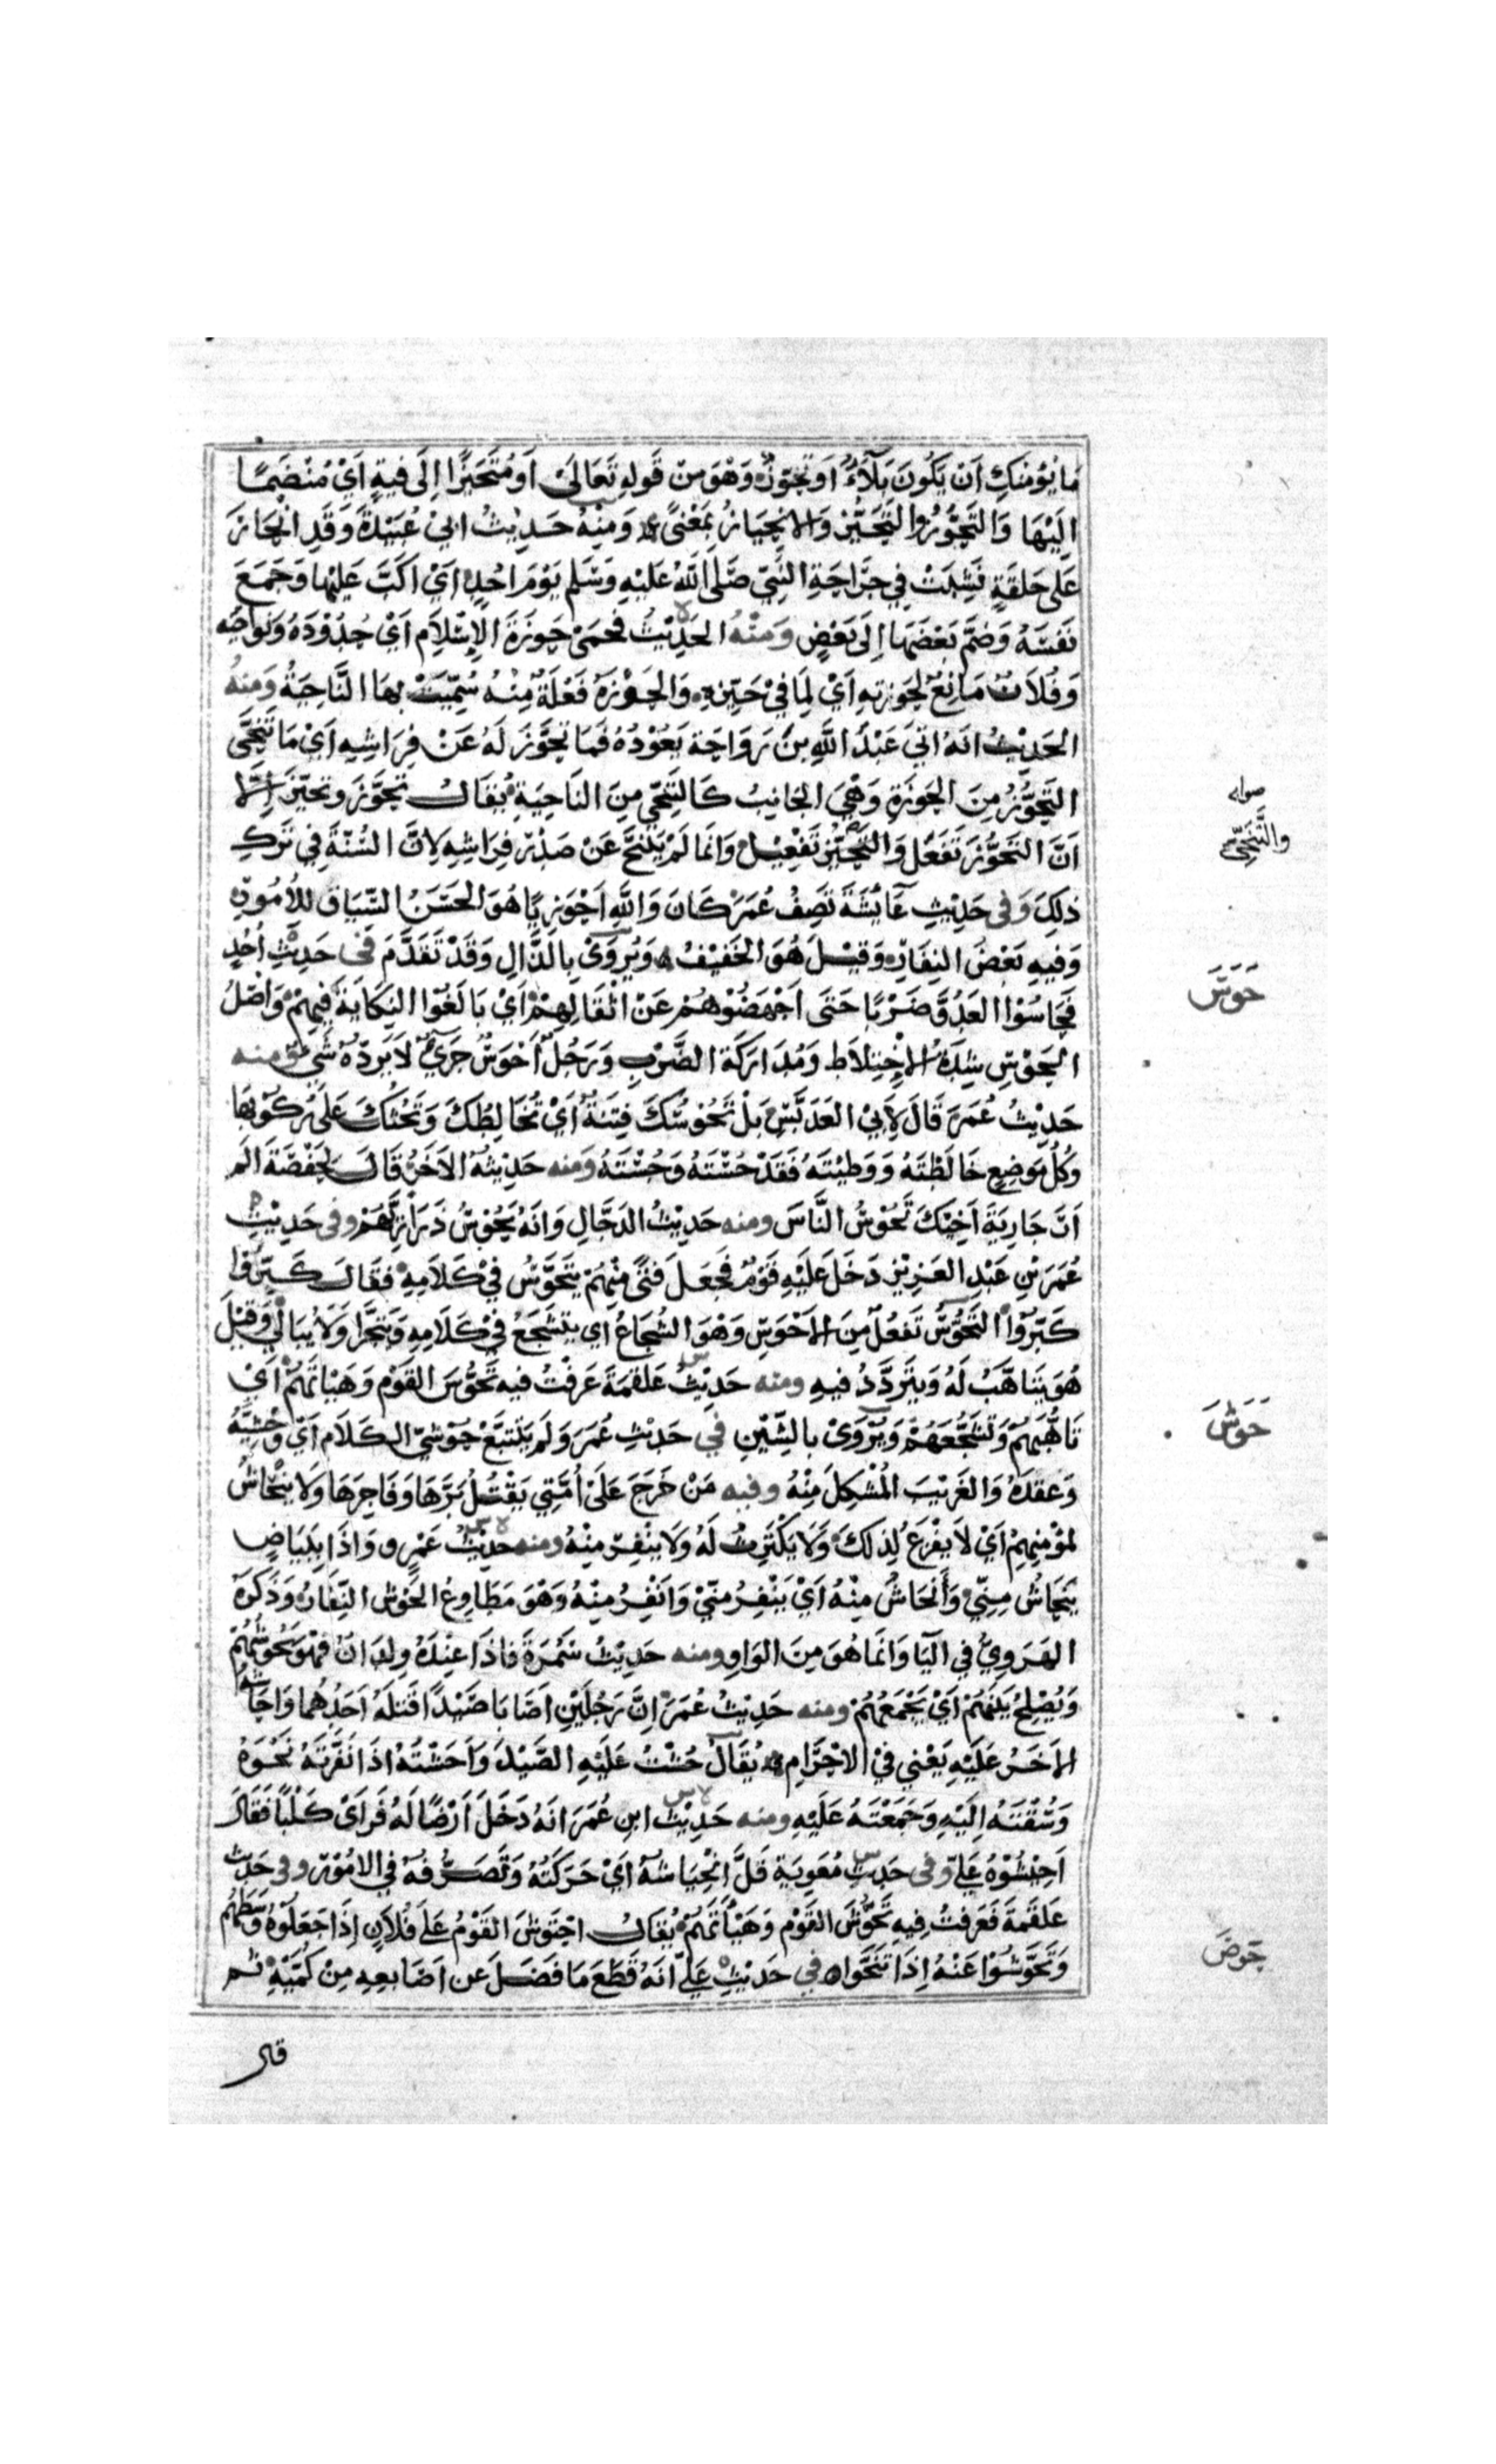 مَا يُؤْمِنُكِ اَنْ يَكُونَ بَلَآءٌ اَوْ تَحَوُّزٌ وَهْوَ مِنْ قَولِهِ تَعَالَى اَو مُتَحَيِّزًا اِلَى فِيَةٍ اَيْ مُنْضَمًّا
اِلَيْهَا وَالتَّحَوُّزُ والتَّحَيُّز وَالانْحِيَازُ بِمَعْنًى وَمِنْهُ حَدِيْثُ ابِيْ عُبَيْدَةَ وَقَدِ انْحَازَ
عَلَى حَلقَةٍ نَشِبَتْ فِي جَرَاحَةِ النَّبِيّ صَلَّى اللّهُ عَلَيْهِ وَسَلم يَوْمَ احُدٍ اَيْ اكَبَّ عَلَيْهَا وَجَمَعَ
نَفْسَهُ وَضَمَّ بَعْضَهَا اِلَى بَعْضٍ وَمِنْهُ الحَدِيْثُ فَحَمَى حَوزَةَ الاِسْلَامِ اَيْ حُدُوْدَهُ وَنَوَاحِيَهُ
وَفُلَانٌ مَانِعٌ لِحَوزتِهِ اَيْ لِمَا فِيْ حَيِّزِهِ وَالحَوْزَةُ فَعْلَةٌ مِنْهُ سُمِّيَتْ بِهَا النَّاحِيَةُ وَمِنهُ
الحَدِيْثُ انَهُ اتَى عَبْدَ اللَّهِ بنَ رَوَاحَة يَعُوْدُهُ فَمَا تَحَوَّزَ لَهُ عَنْ فِرَاشِهِ اَيْ مَا تَنَحَّى
التَّحَوُّزُ مِنَ الحَوزَةِ وَهْيَ الجَانِبُ كَالتَنَحِّي مِنَ النَاحِيَةِ يُقَالُ تَحَوَّزَ وتَحَيَّزَ اِلَّا
اَنَّ التَحَوُّزَ تَفَعُّل وَالتَّحَيُّز تَفْعِيْل وَانَّمَا لَمْ يَتَنَحَّ عَنْ صَدْرِ فِرَاشِهِ لِاَنَّ السُّنَّةَ فِي تَركِ
ذلِكَ وَفى حَدِيْثِ عَائِشَةَ تَصِفُ عُمَرَ كَانَ وَاللَّهِ اَحْوَزِيًا هُوَ الحَسَنُ السِّيَاق لِلاُمُوْرِ
وَفِيهِ بَعْضُ النِفَارِ وَقِيْلَ هُوَ الخَفِيْفُ وَيُرْوَى بِالذَّالِ وَقَدْ تَقَدَّمَ في حَدِيْثِ اُحُدٍ
فَحَاسُوْا العَدُوَّ ضَرْبًا حَتَى اَجْهَضُوْهُمْ عَنْ اثْقَالِهِمْ اَيْ بَالَغُوْا النِكَايَةَ فِيهِمْ وَاَصْلُ
الحَوْسِ شِدَةُ الاِخْتِلاَطِ وَمُدَارَكَة الضَّرْبِ وَرَجُلٌ اَحْوَسُ جَرِيٌّ لاَ يَرُدّهُ شَيْءٌ ومنه
حَدِيْثُ عُمَرَ قَالَ لِاَبِيْ العَدَبَّسِ بَلْ تَحُوْسُكَ فِتْنَةٌ اَيْ تُخَالِطُكَ وَتَحُثُّكَ عَلَى رُكُوْبِهَا
وَكُلُّ مَوضِعٍ خَالَطْتَهُ وَوَطِيْتَهُ فَقَدْ حُسْتَهُ وَجُسْتَهُ وَمنه حَدِيْثُهُ الآخَرُ قَالَ لِحَفْصَةَ اَلَم
اَنَّ جَارِيَةَ اَخِيْكَ تَحُوْسُ النَّاسَ ومنه حَدِيْثُ الدَجَّالِ وَانَهُ يَحُوْسُ ذَرَارِيَّهُمْ وفى حَدِيْثِ
عُمَرَ بْنِ عَبْدِ العَزِيْزِ دَخَلَ عَلَيْهِ قَوْمٌ فَجَعَلَ فَتًى مِنْهُمْ يَتَحَوَّسُ فِيْ كَلَامِهِ فَقَالَ كَبِّرُوْا
كَبِّرُوْا التَحَوُّسُ تَفَعُّلٌ مِنَ الاَحْوَسِ وَهْوَ الشُجَاعُ اي يَتَشَجَّعُ فِيْ كَلَامِهِ وَيَتَجَرَّا وَلَا يُبَالِي وَقِيْلَ
هُوَ يَتَاهَّبُ لَهُ وَيَتَرَدَّدُ فِيهِ ومنه حَدِيْثُ عَلقَمَةَ عَرَفْتُ فيه تَحَوُّسَ القَوْمِ وَهَيْاتَهُمْ اَيْ
تَاَهُّبَهُمْ وَتَشَجُّعَهُمْ وَيُرْوَى بِالشِّيْنِ في حَدِيْثِ عُمَرَ وَلَم يَتَتَبَّعْ حُوْشِيّ الكَلَام اَيْ وَحْشِيَّهُ
وَعُقَدَهُ وَالغَرِيْبَ المُشْكِلَ مِنْهُ وفيه مَنْ خَرَجَ عَلَى اُمَّتِي يَقْتُلُ بَرَّهَا وَفَاجِرَهَا وَلَا يَنْحَاشُ
لِمُؤْمِنِهِمْ اَيْ لَا يَفْزَعُ لِذلكَ وَلَا يَكْتَرِثُ لَهُ وَلَا يَنْفِرُ مِنْهُ ومنه حَدِيْثُ عَمْرٍو وَاذَا بِبَيَاضٍ
يَنْحَاشُ مِنِّي وَاَنْحَاشُ مِنْهُ اَيْ يَنْفِرُ مِنّيْ وَانْفِرُ مِنْهُ وَهْوَ مُطَاوِعُ الحَوْش النِّفَار وَذَكَرَهُ
الهَرَوِيُّ في اليَا وَانَمَا هُوَ مِنَ الوَاوِ ومنه حَدِيْثُ سَمُرَةَ فَاذَا عِنْدَهُ وِلدَانٌ فَهْوَ يَحُوْشُهُمْ
وَيُصْلِحُ بَيْنَهُمْ اَيْ يَجْمَعُهُمْ ومنه حَدِيْثُ عُمَرَ اِنَّ رَجُلَيْنِ اَصَابَا صَيْدًا قَتَلَهُ اَحَدُهُما وَاحَاشَهُ
الاَخَرُ عَلَيْهِ يَعْنِي فِيْ الاِحْرَامِ يُقَالُ حُشْتُ عَلَيْهِ الصَّيْدَ وَاَحَشْتُهُ اذَا نَفَّرْتَهُ نَحْوَهُ
وَسُقْتَهُ اِلَيْهِ وَجَمَعْتَهُ عَلَيْهِ ومنه حَدِيْثُ ابن عُمَرَ انَهُ دَخَلَ اَرْضًا لَهُ فَرَاَىْ كَلْبًا فَقَالَ
اَحِيْشُوْهُ عَلَيّ وفى حَدِيْثِ مُعَوِيَة قَلَّ انْحِيَاشُهُ اَيْ حَرَكَتُهُ وَتَصَرُّفُهُ فِي الامُوْر وفى حَدِيْث
عَلقَمَةَ فَعَرَفتُ فِيهِ تَحَوُّشَ القَوْم وَهَيْأَتَهُمْ يُقَالُ احْتَوَشَ القَوْمُ عَلَى فُلاَنٍ اِذَا جَعَلُوْهُ وَسَطَهُم
وَتَحَوَّشُوْا عَنْهُ اِذَا تَنَحَّوا في حَدِيْثِ عَلِيّ انَهُ قَطَعَ مَا فَضَلَ عَن اَصَابِعِهِ مِنْ كُمَّيْهِ ثم
قال
صوابه
والتَّنَحِّي
حَوَسَ
حَوَشَ
حَوَضَ